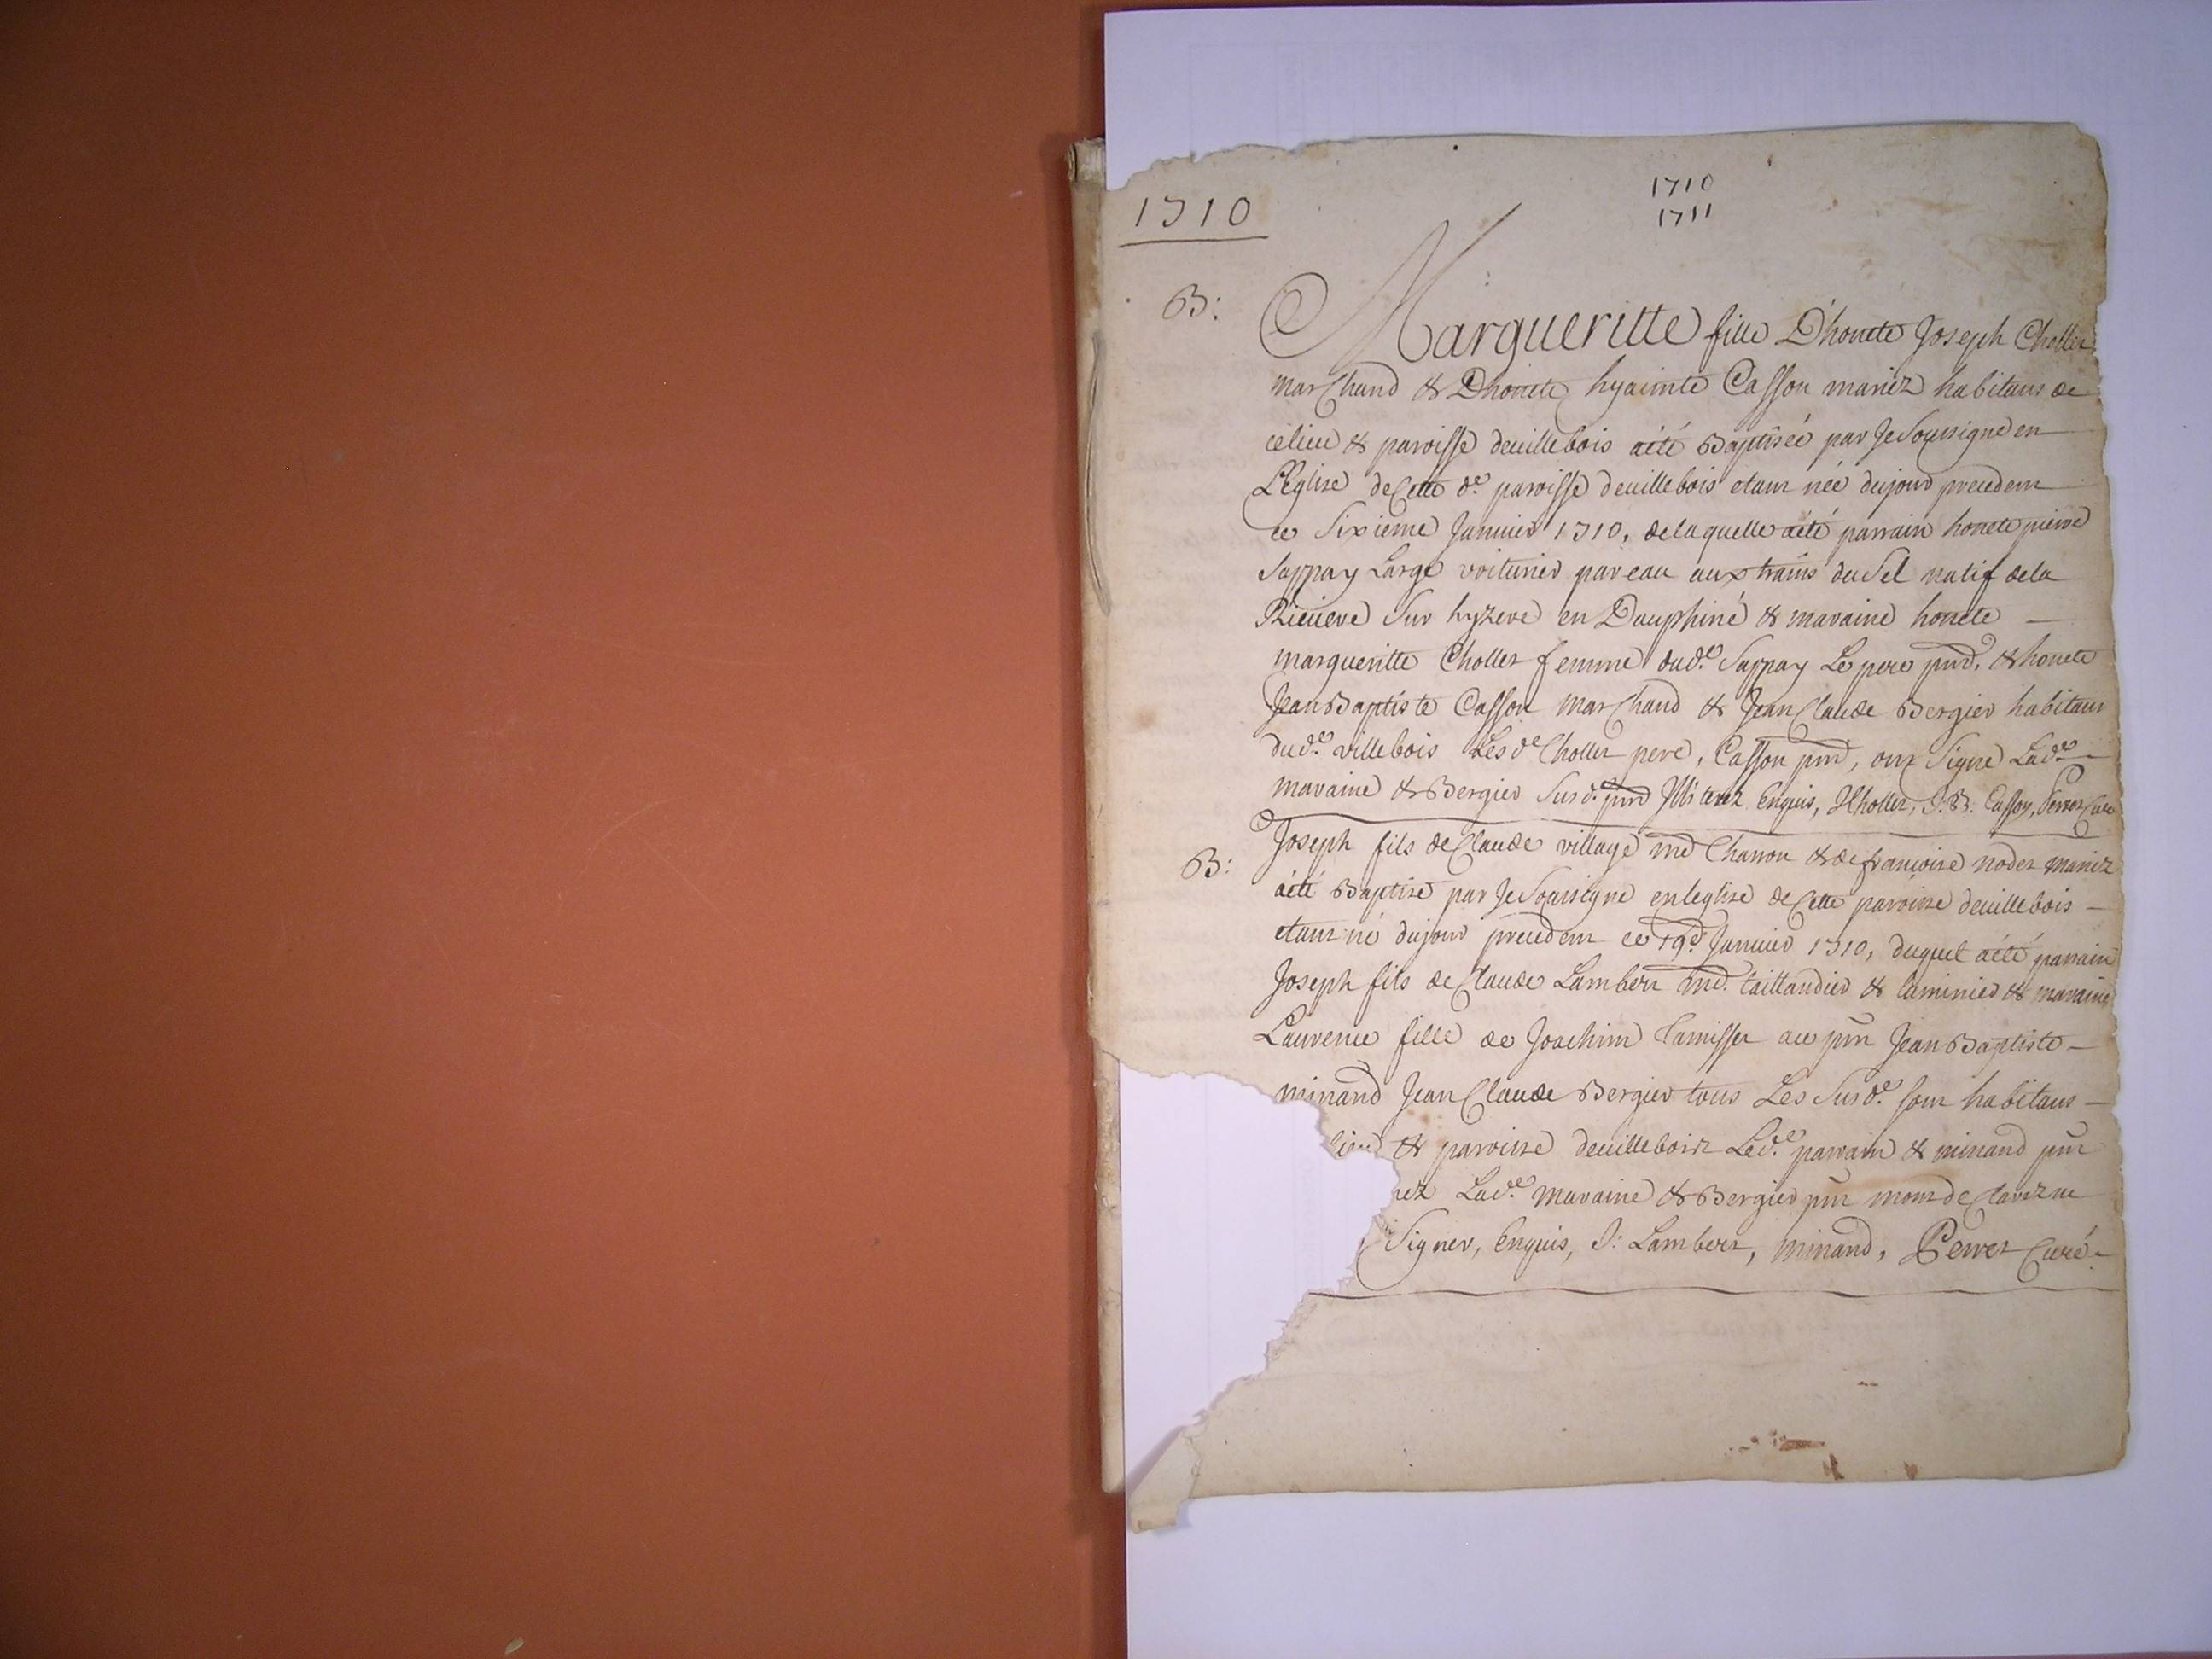 1710
1711
1710
B:
Margueritte fille D'honete Joseph Chollet
marChand & Dhonete hyainte Casson mariez habitans de
celieu & paroisse deuillebois aété Baptisée par JeSousigné en
L'Eglise deCette de. paroisse deuillebois etant née dujour precedent
ce Sixieme Januier 1710, delaquelle aété parrain honete pierre
Sappay Large voiturier par eau aux trains du Sel natif dela
Riuiere Sur hyzere en Dauphiné & maraine honete
margueritte Chollet femme dud.e Sappay Le pere pnt. & honete
Jean Baptiste Casson marChand & Jean Claude Bergier habitans
dud.e villebois Les de Chollet pere, Casson pnt, ont Signé Lad.e
maraine & Bergier Susd. pnt Illiterez Enquis, JChollet, J.B. Casson, Perret Curé
B:
Joseph fils de Claude village md Charron & de francoise nodet mariez
aété Baptisé par JeSousigné enleglise deCette paroisse deuillebois
etant né dujour precedent ce 19e Januier 1710, duquel aété parrain
Joseph fils de Claude Lambert md. taillandier & & maraine
Laurence fille de Joachim au pnt Jean Baptiste
minand Jean Claude Bergier tous Les Susd.e sont habitans
lieu & paroisse deuillebois Led.e parrain & minand pnt
nez Lad.e maraine & Bergier pnt
Signer, Enquis, J: Lambert, minand, Perret Curé